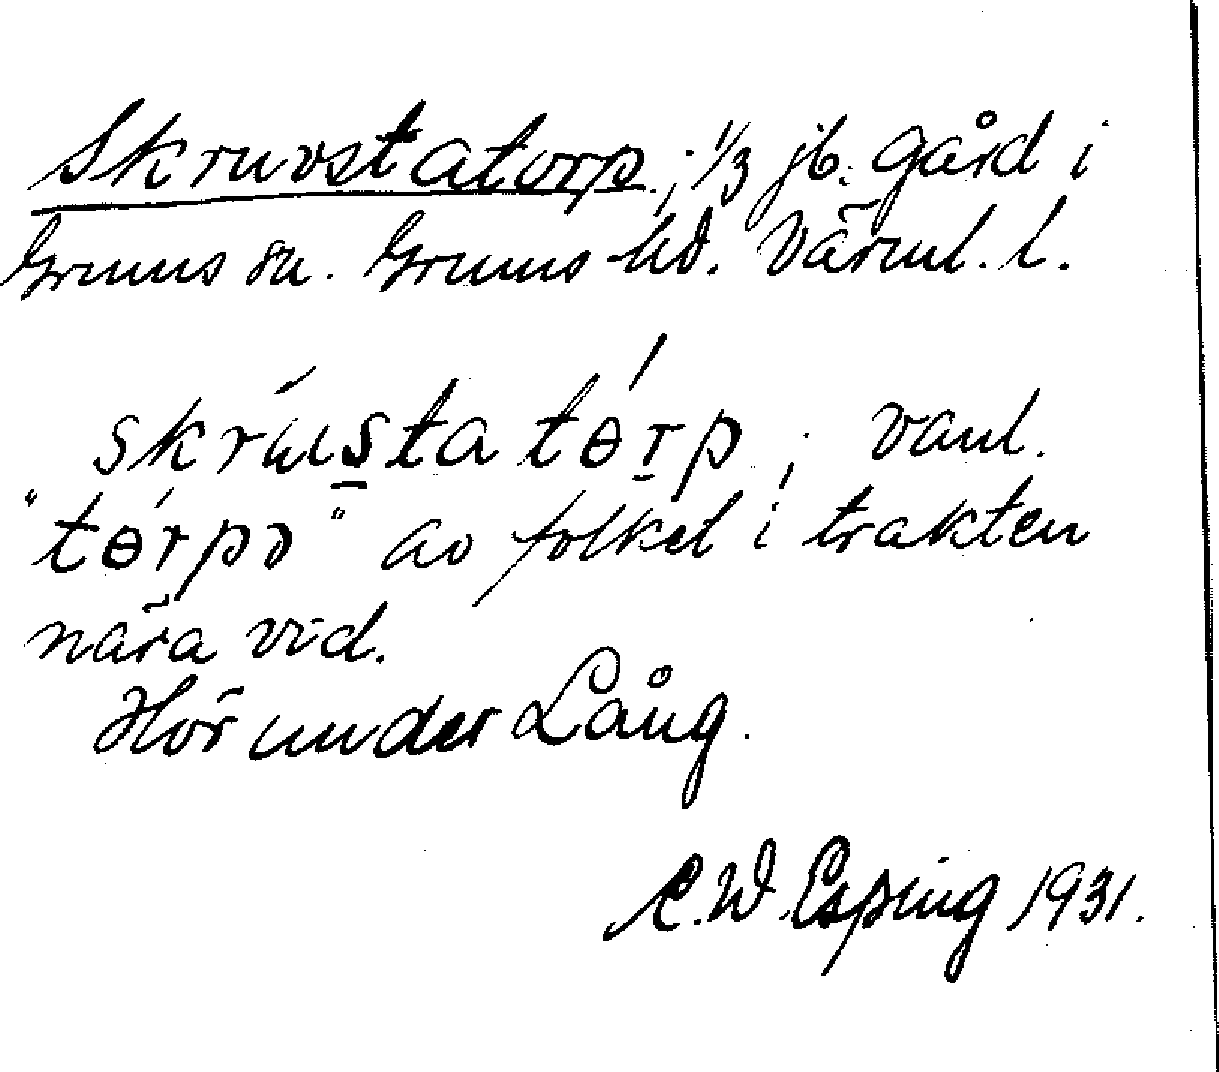 Skruvstatorp, 1/3 jb. gård i
Grums sn. Grums hd. Värml. l.
skrúustatɵ́rp, vanl.
"tɵ́rpə" av folket i trakten
nära vid.
Hör under Lång.
C.W. Esping 1931.